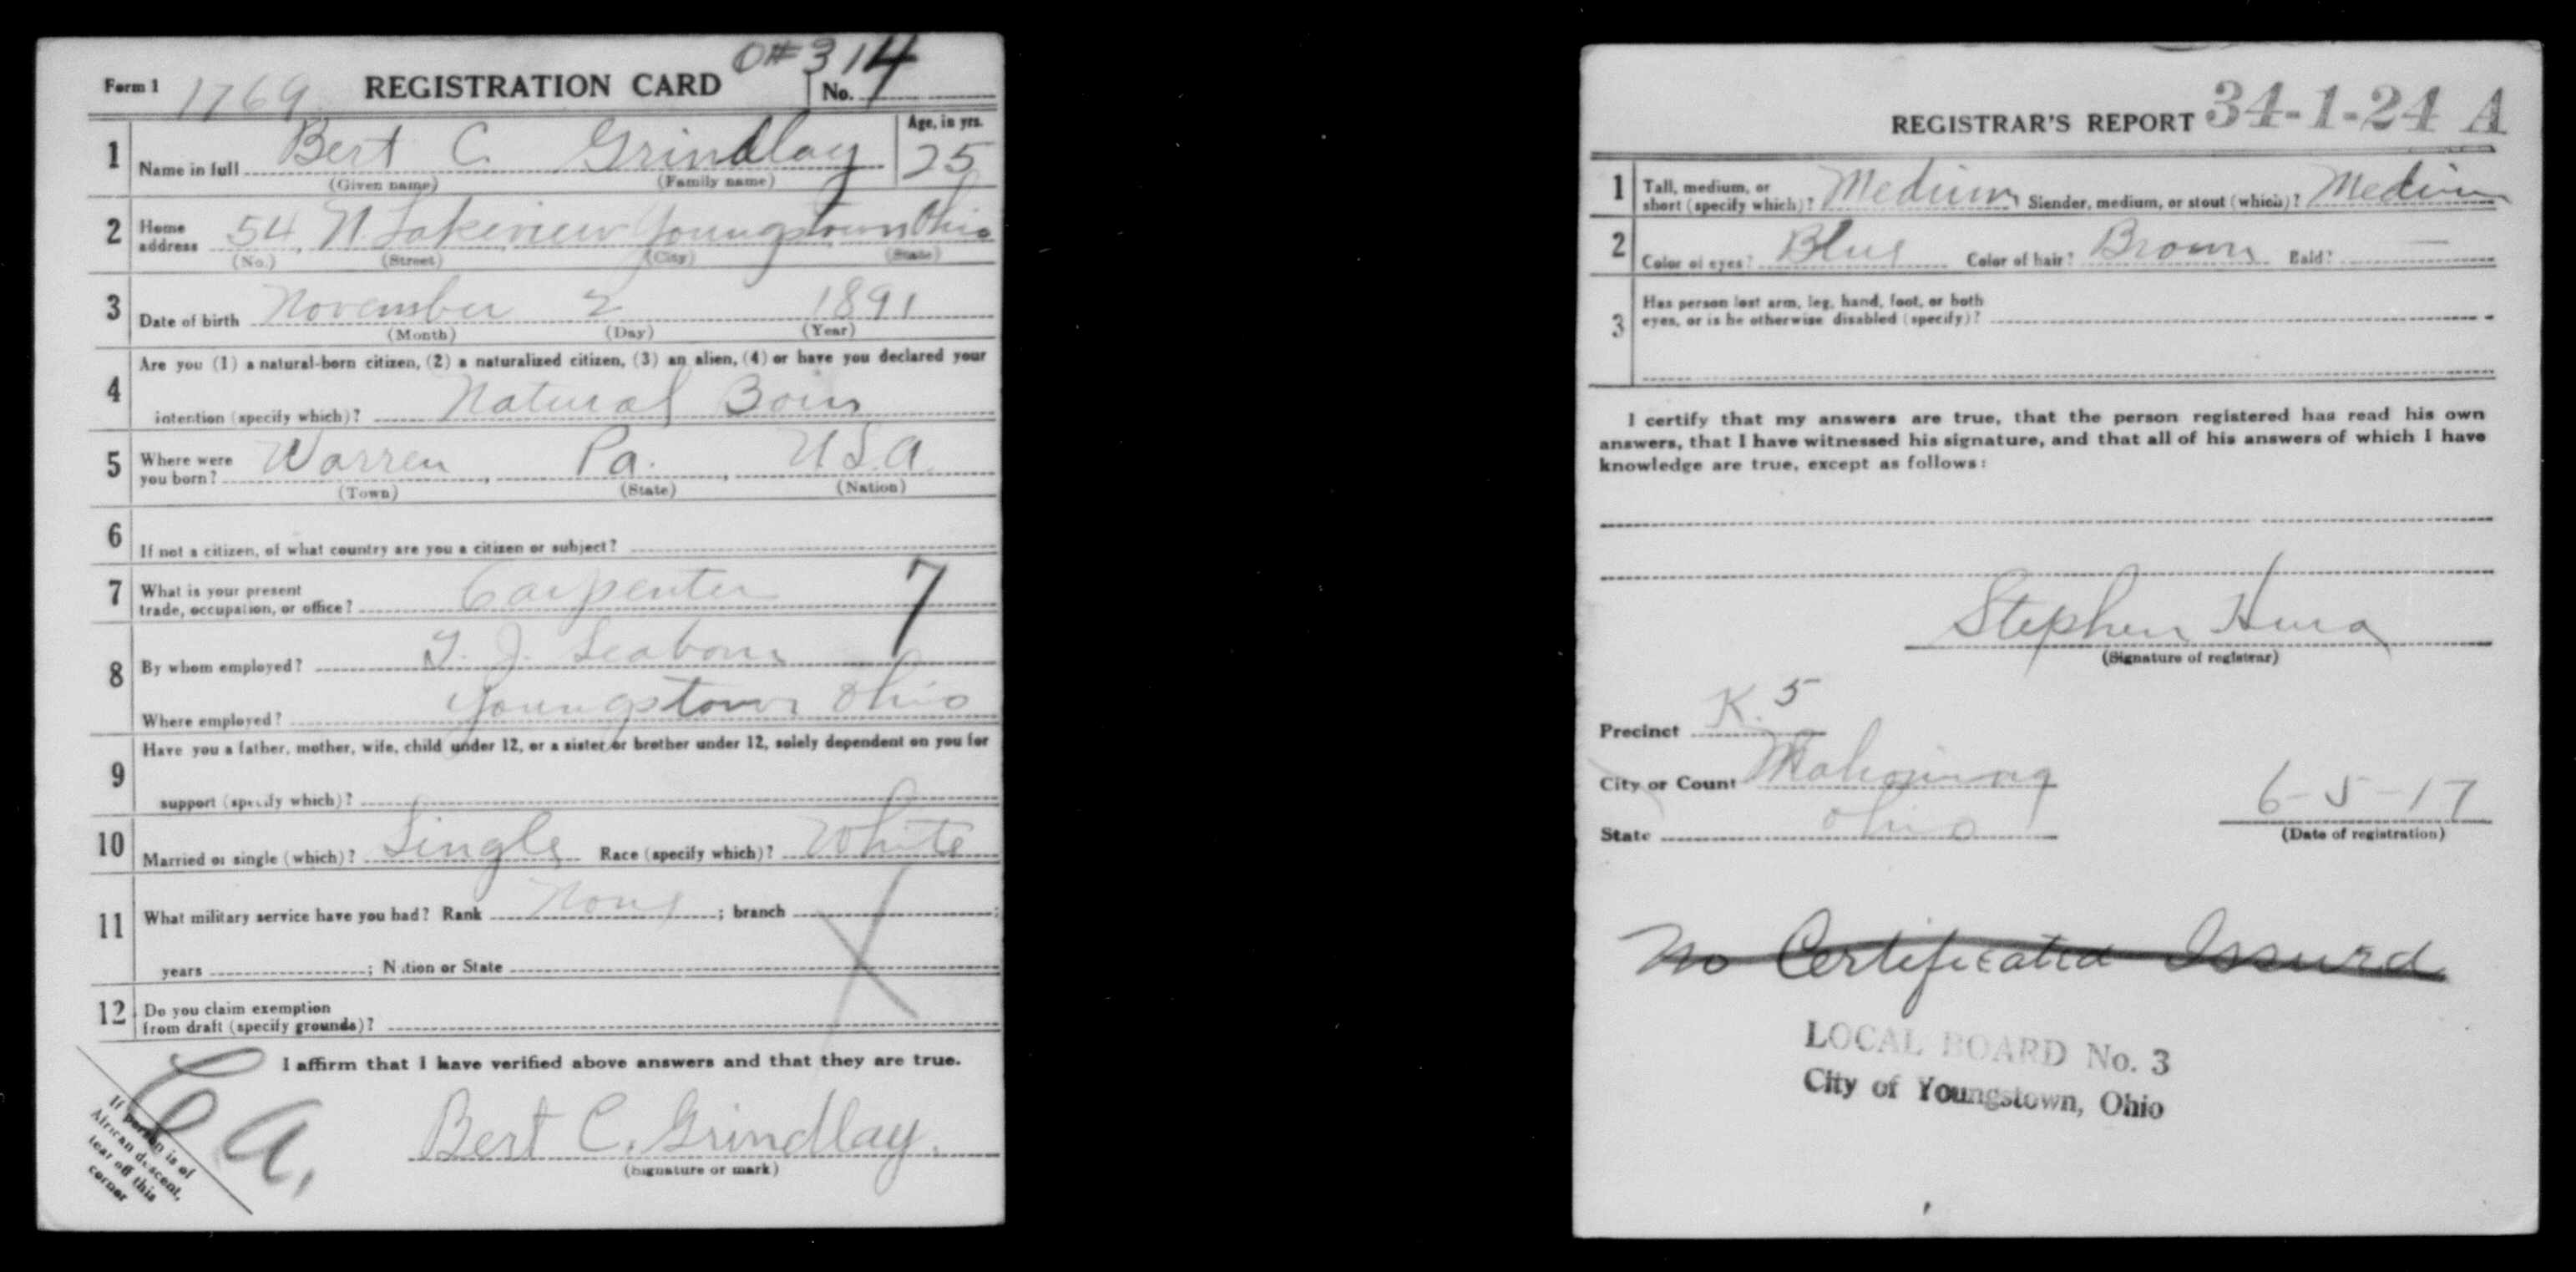 Form 1 1769 REGISTRATION CARD O#314 No.
1 Name in full Bert C. Grindlay Age, in yrs. 25
(Given name) (Family name)
2 Home address 54 N. Lakeview Youngstown Ohio
(No.) (Street) (City) (State)
3 Date of birth November 2 1891
(Month) (Day) (Year)
4 Are you (1) a natural-born citizen, (2) a naturalized citizen, (3) an alien, (4) or have you declared your
intention (specify which)? Natural Born
5 Where were you born? Warren, Pa., U.S.A.
(Town) (State) (Nation)
6 If not a citizen, of what country are you a citizen or subject?
7 What is your present
trade, occupation, or office? Carpenter 7
8 By whom employed? J.
Where employed? Youngstown Ohio
9 Have you a father, mother, wife, child under 12, or a sister or brother under 12, solely dependent on you for
support (specify which)?
10 Married or single (which)? Single Race (specify which)? White
11 What military service have you had? Rank None ; branch ;
years ; Nation or State
12 Do you claim exemption
from draft (specify grounds)?
I affirm that I have verified above answers and that they are true.
Bert C. Grindlay.
(Signature or mark)
If person is of
African descent,
tear off this
corner
REGISTRAR'S REPORT 34-1-24 A
1 Tall, medium, or
short (specify which)? Medium Slender, medium, or stout (which)? Medium
2 Color of eyes? Blue Color of hair? Brown Bald? —
3 Has person lost arm, leg, hand, foot, or both
eyes, or is he otherwise disabled (specify)?
I certify that my answers are true, that the person registered has read his own
answers, that I have witnessed his signature, and that all of his answers of which I have
knowledge are true, except as follows:
Stephen
(Signature of registrar)
Precinct K. 5
City or Count Mahoning
State Ohio 6-5-17
(Date of registration)
No Certificated Issued
LOCAL BOARD No. 3
City of Youngstown, Ohio